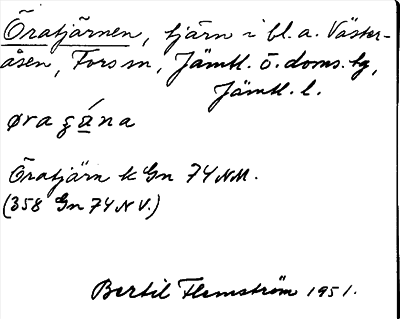 Öratjärnen, tjärn i bl.a. Väster-
åsen, Fors sn, Jämtl. ö. doms. tg,
Jämtl. l.
øra ʂána
Öratjärn k Gn 74 NM.
(358 Gn 74 N V.)
Bertil Flemström 1951.